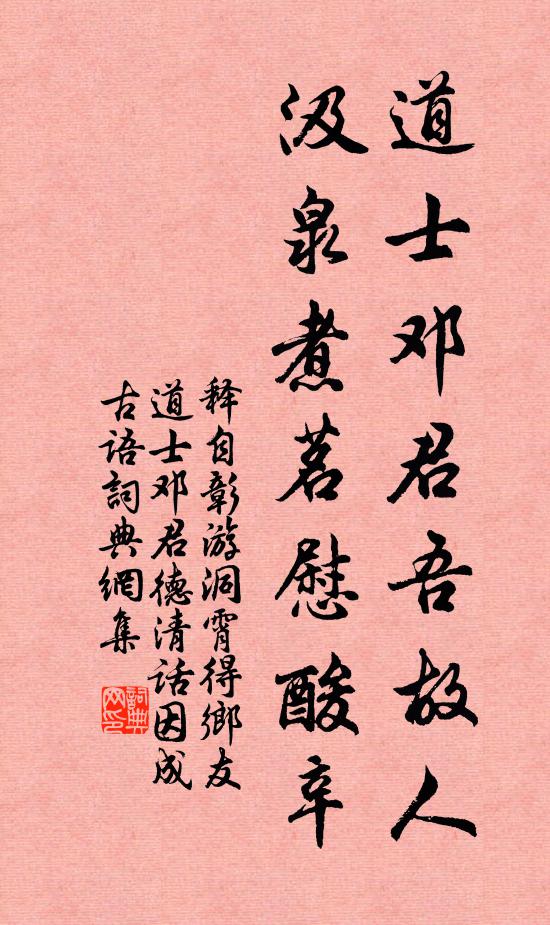 道士邓君吾故人
汲泉煮茗慰酸辛
释自彰游洞霄得鄉友
道士邓君德清话因成
古语詞典網集
詞典
网印